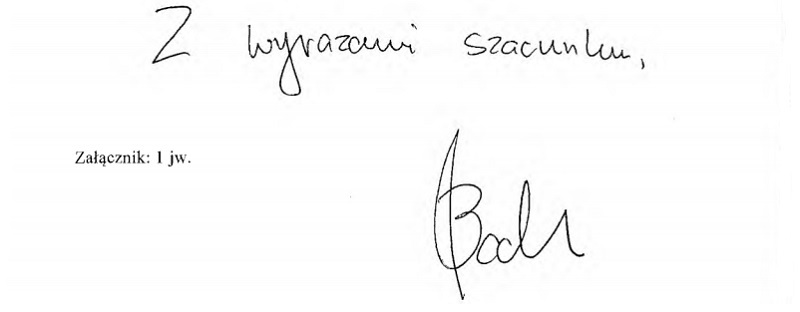 Z wyrazami szacunku,
Załącznik: 1 jw.